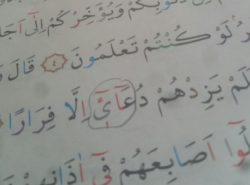 وَيُؤَخِّرْكُمْ إِلَىٰ
لَوْ كُنْتُمْ تَعْلَمُونَ ﴿٤﴾ قَالَ
لَمْ يَزِدْهُمْ دُعَآئِىٓ إِلَّا فِرَارًا
اَصَابِعَهُمْ فِىٓ اٰذَانِهِمْ